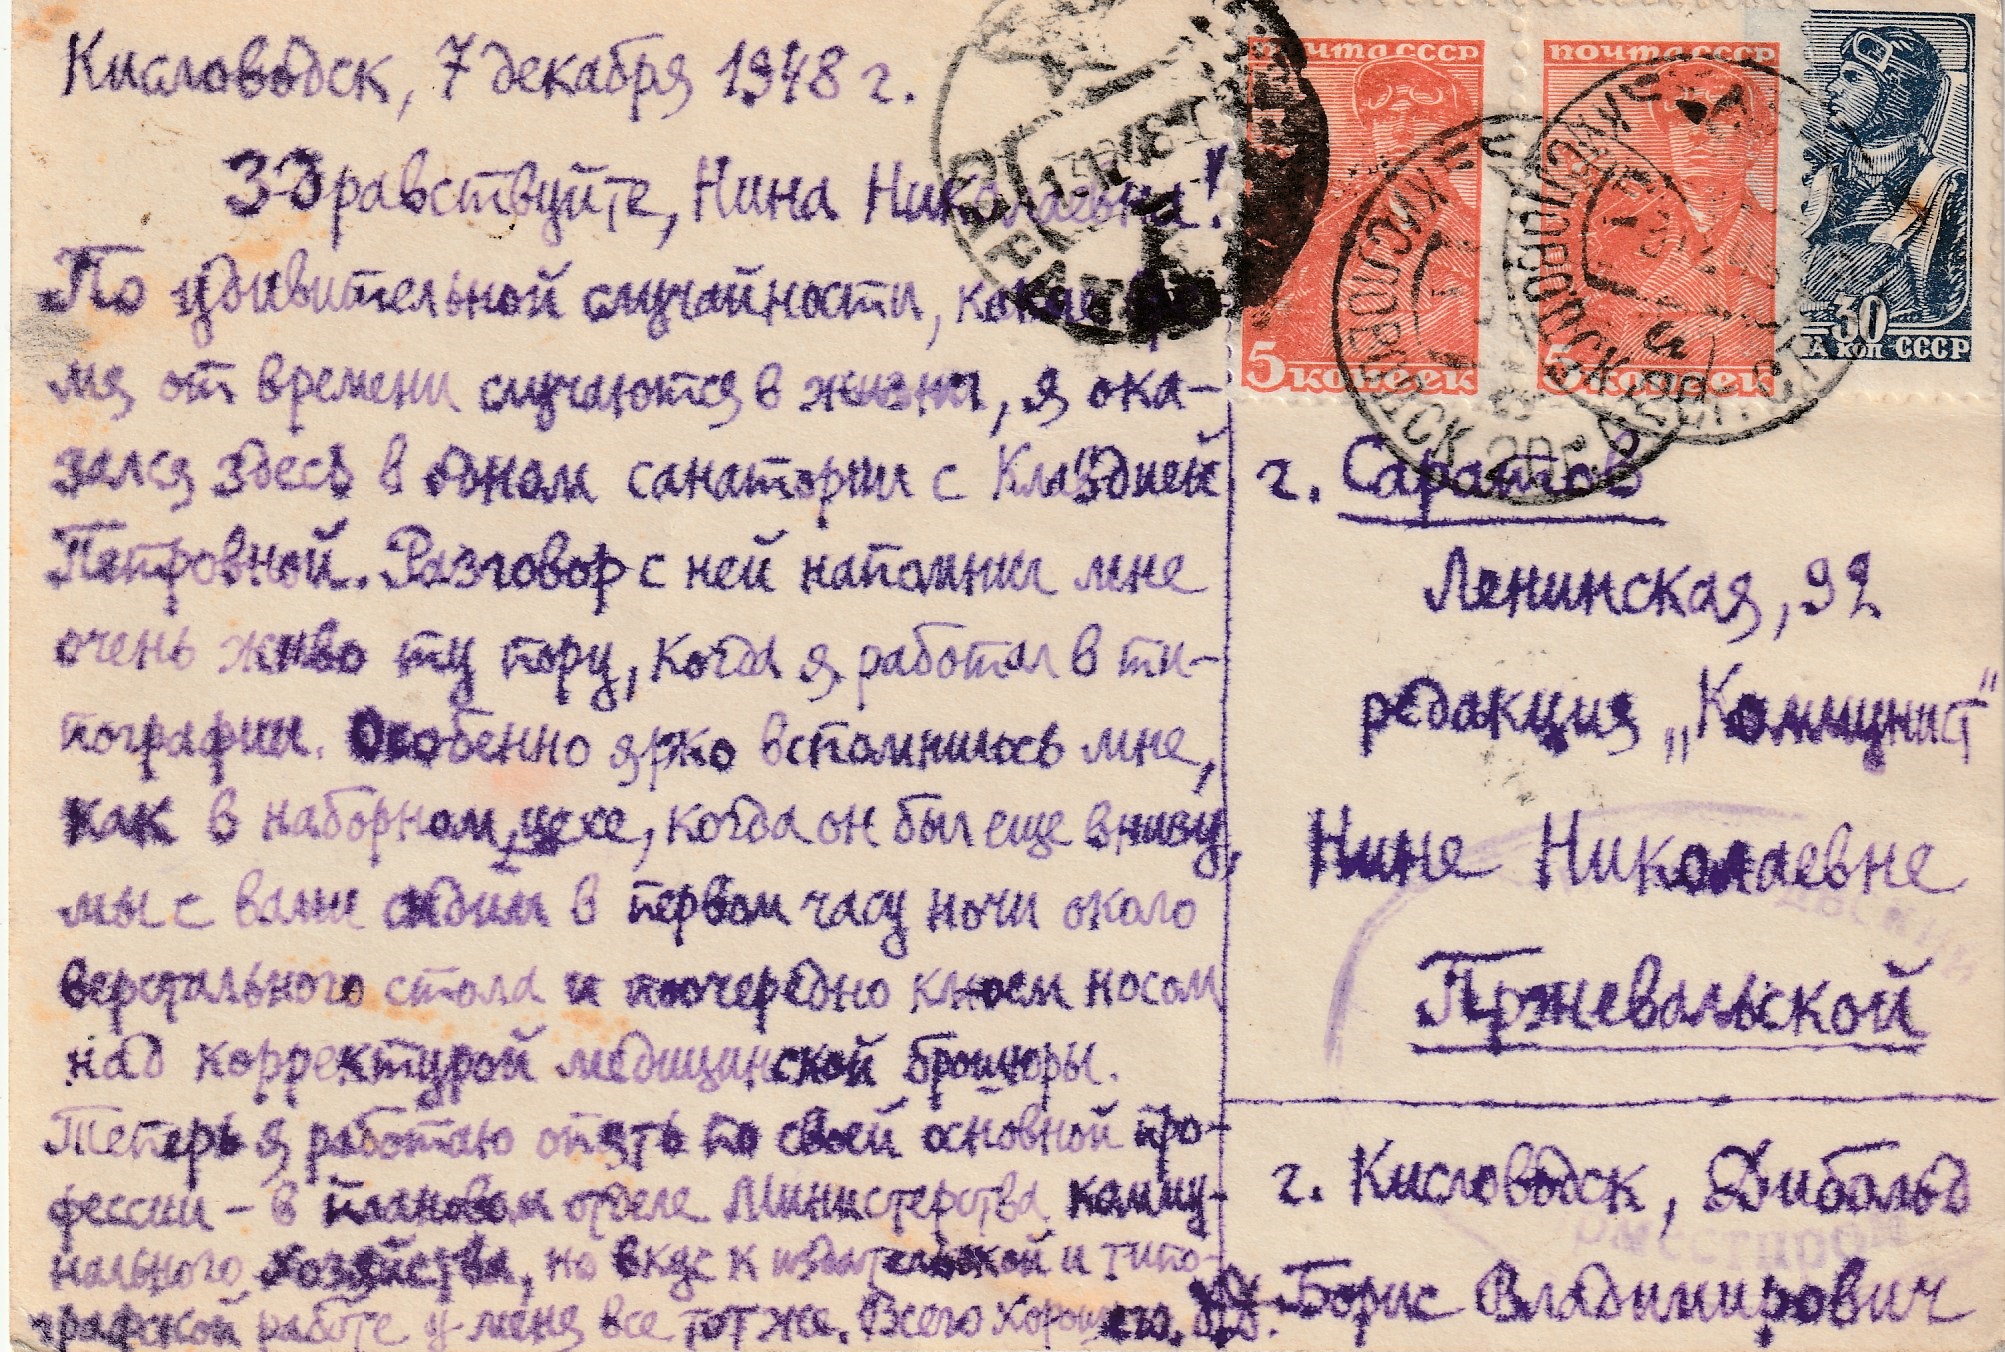 Кисловодск, 7 декабря 1948 г.
Здравствуйте, Нина Николаевна!
По удивительной случайности, какие
мя от времени случаются в жизни, я ока-
зался здесь в одном санатории с Клавдией
Петровной. Разговор с ней напомнил мне
очень живо ту пору, когда я работал в ти-
пографии. Особенно ярко вспомнилось мне,
как в наборном цехе, когда он был еще внизу,
мы с вами сидим в первом часу ночи около
верстального стола и поочередно клюем носом
над корректурой медицинской брошюры.
Теперь я работаю опять по своей основной про-
фессии – в плановом отделе Министерства комму-
нального хозяйства, но вкус к издательской и типо-
графской работе у меня все тот же. Всего хорошего.
ПОЧТА СССР
5 КОПЕЕК
ПОЧТА СССР
5 КОПЕЕК
30
КОП СССР
КИСЛОВОДСК
КИСЛОВОДСК
г. Саратов
Ленинская, 92
редакция „Коммунист"
Нине Николаевне
Пржевальской
г. Кисловодск, Дибольд
Борис Владимирович